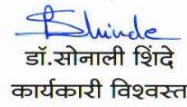 Shinde
डॉ.सोनाली शिंदे
कार्यकारी विश्वस्त